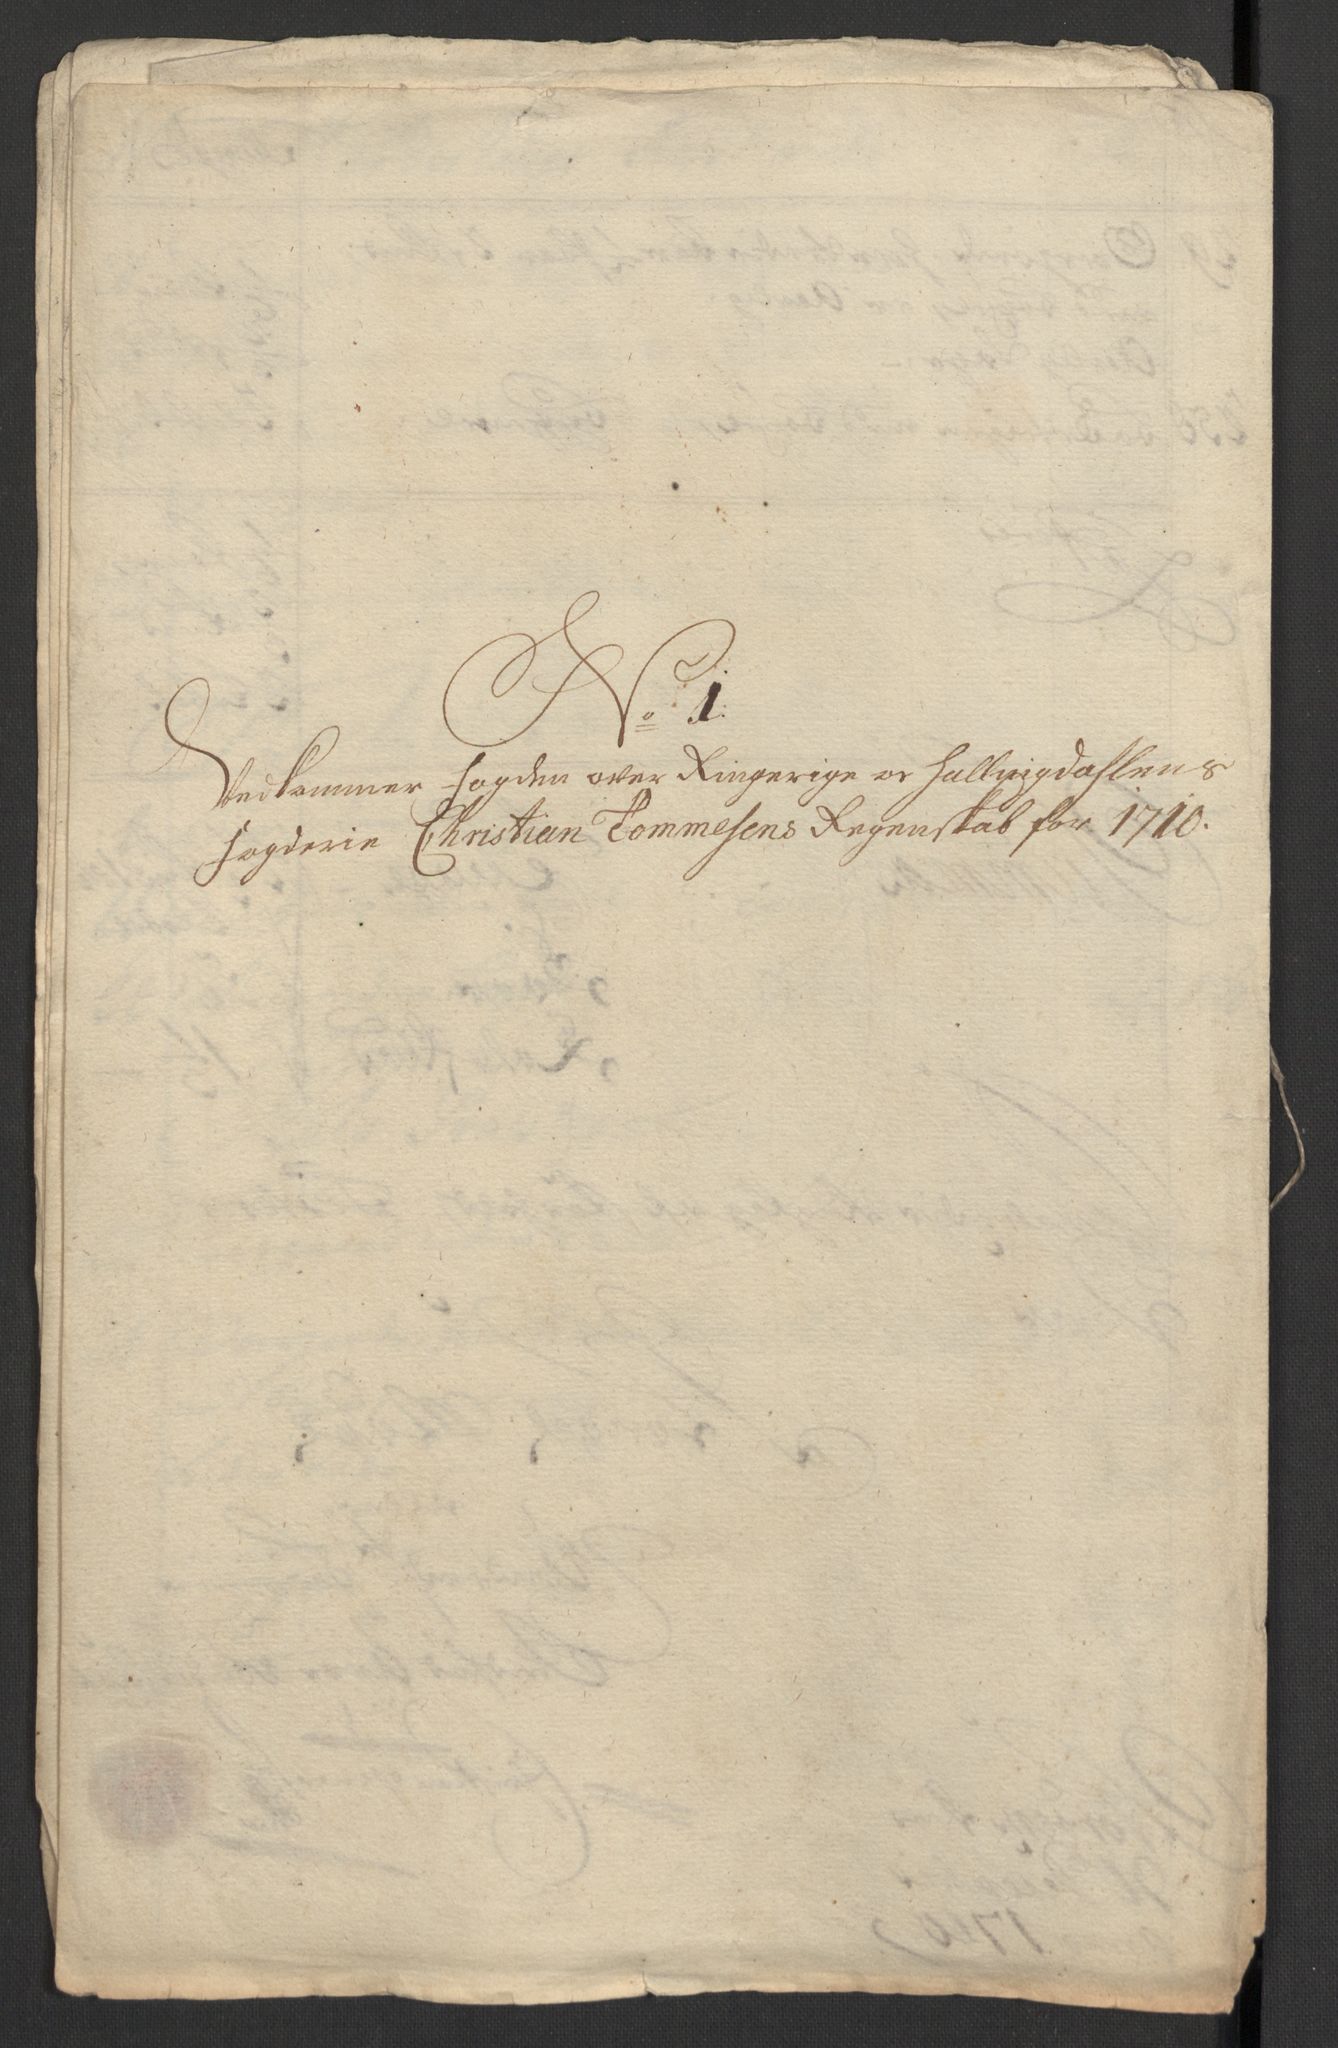 No 1.
Vedkommer fogden over Ringerige oc Hallingdahlens
fogderie Christian Tommesens Regenskab for 1710.